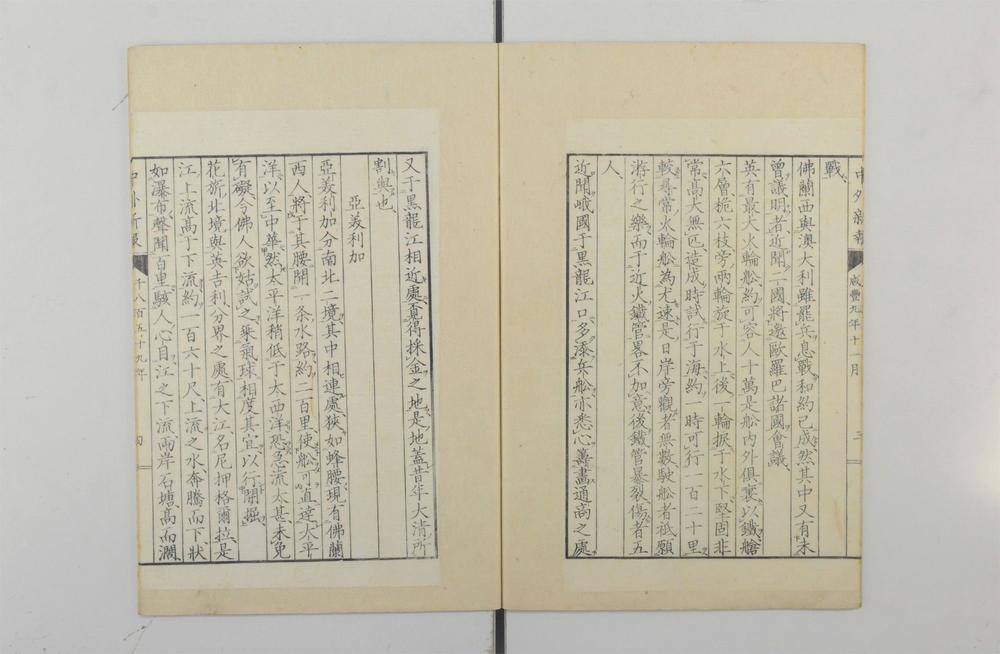 中外新報 咸豐九年十一月 三
戰
佛蘭西與澳大利雖罷兵息戰和約已成然其中又有未
曾議明者近聞二國將邀歐羅巴諸國會議
英有最大火輪船約可容人十萬是船內外俱裹以鐵艙
六層桅六枝旁兩輪旋于水上後一輪捩于水下堅固非
常高大無匹造成時試行于海約一時可行一百二十里
較尋常火輪船為尤速是日岸旁觀者無數駛船者祗願
游行之樂而于近火鐵管畧不加意後鐵管暴裂傷者五
人
近聞峨國于黑龍江口多添兵船亦悉心籌畫通商之處
又于黑龍江相近處覓得採金之地是地蓋昔年大清所
割與也
亞美利加
亞美利加分南北二境其中相連處狹如蜂腰現有佛蘭
西人將于其腰開一条水路約二百里使船可直達太平
洋以至中華然太平洋稍低于太西洋恐急流太甚未免
有礙今佛人欲姑試之乗氣球相度其宜以行開掘
花旂北境與英吉利分界之處有大江名尼押格爾拉是
江上流高于下流約一百六十尺上流之水奔騰而下狀
如瀑布聲聞百里駭人心目江之下流兩岸石塘高而濶
中外新報 千八百五十九年